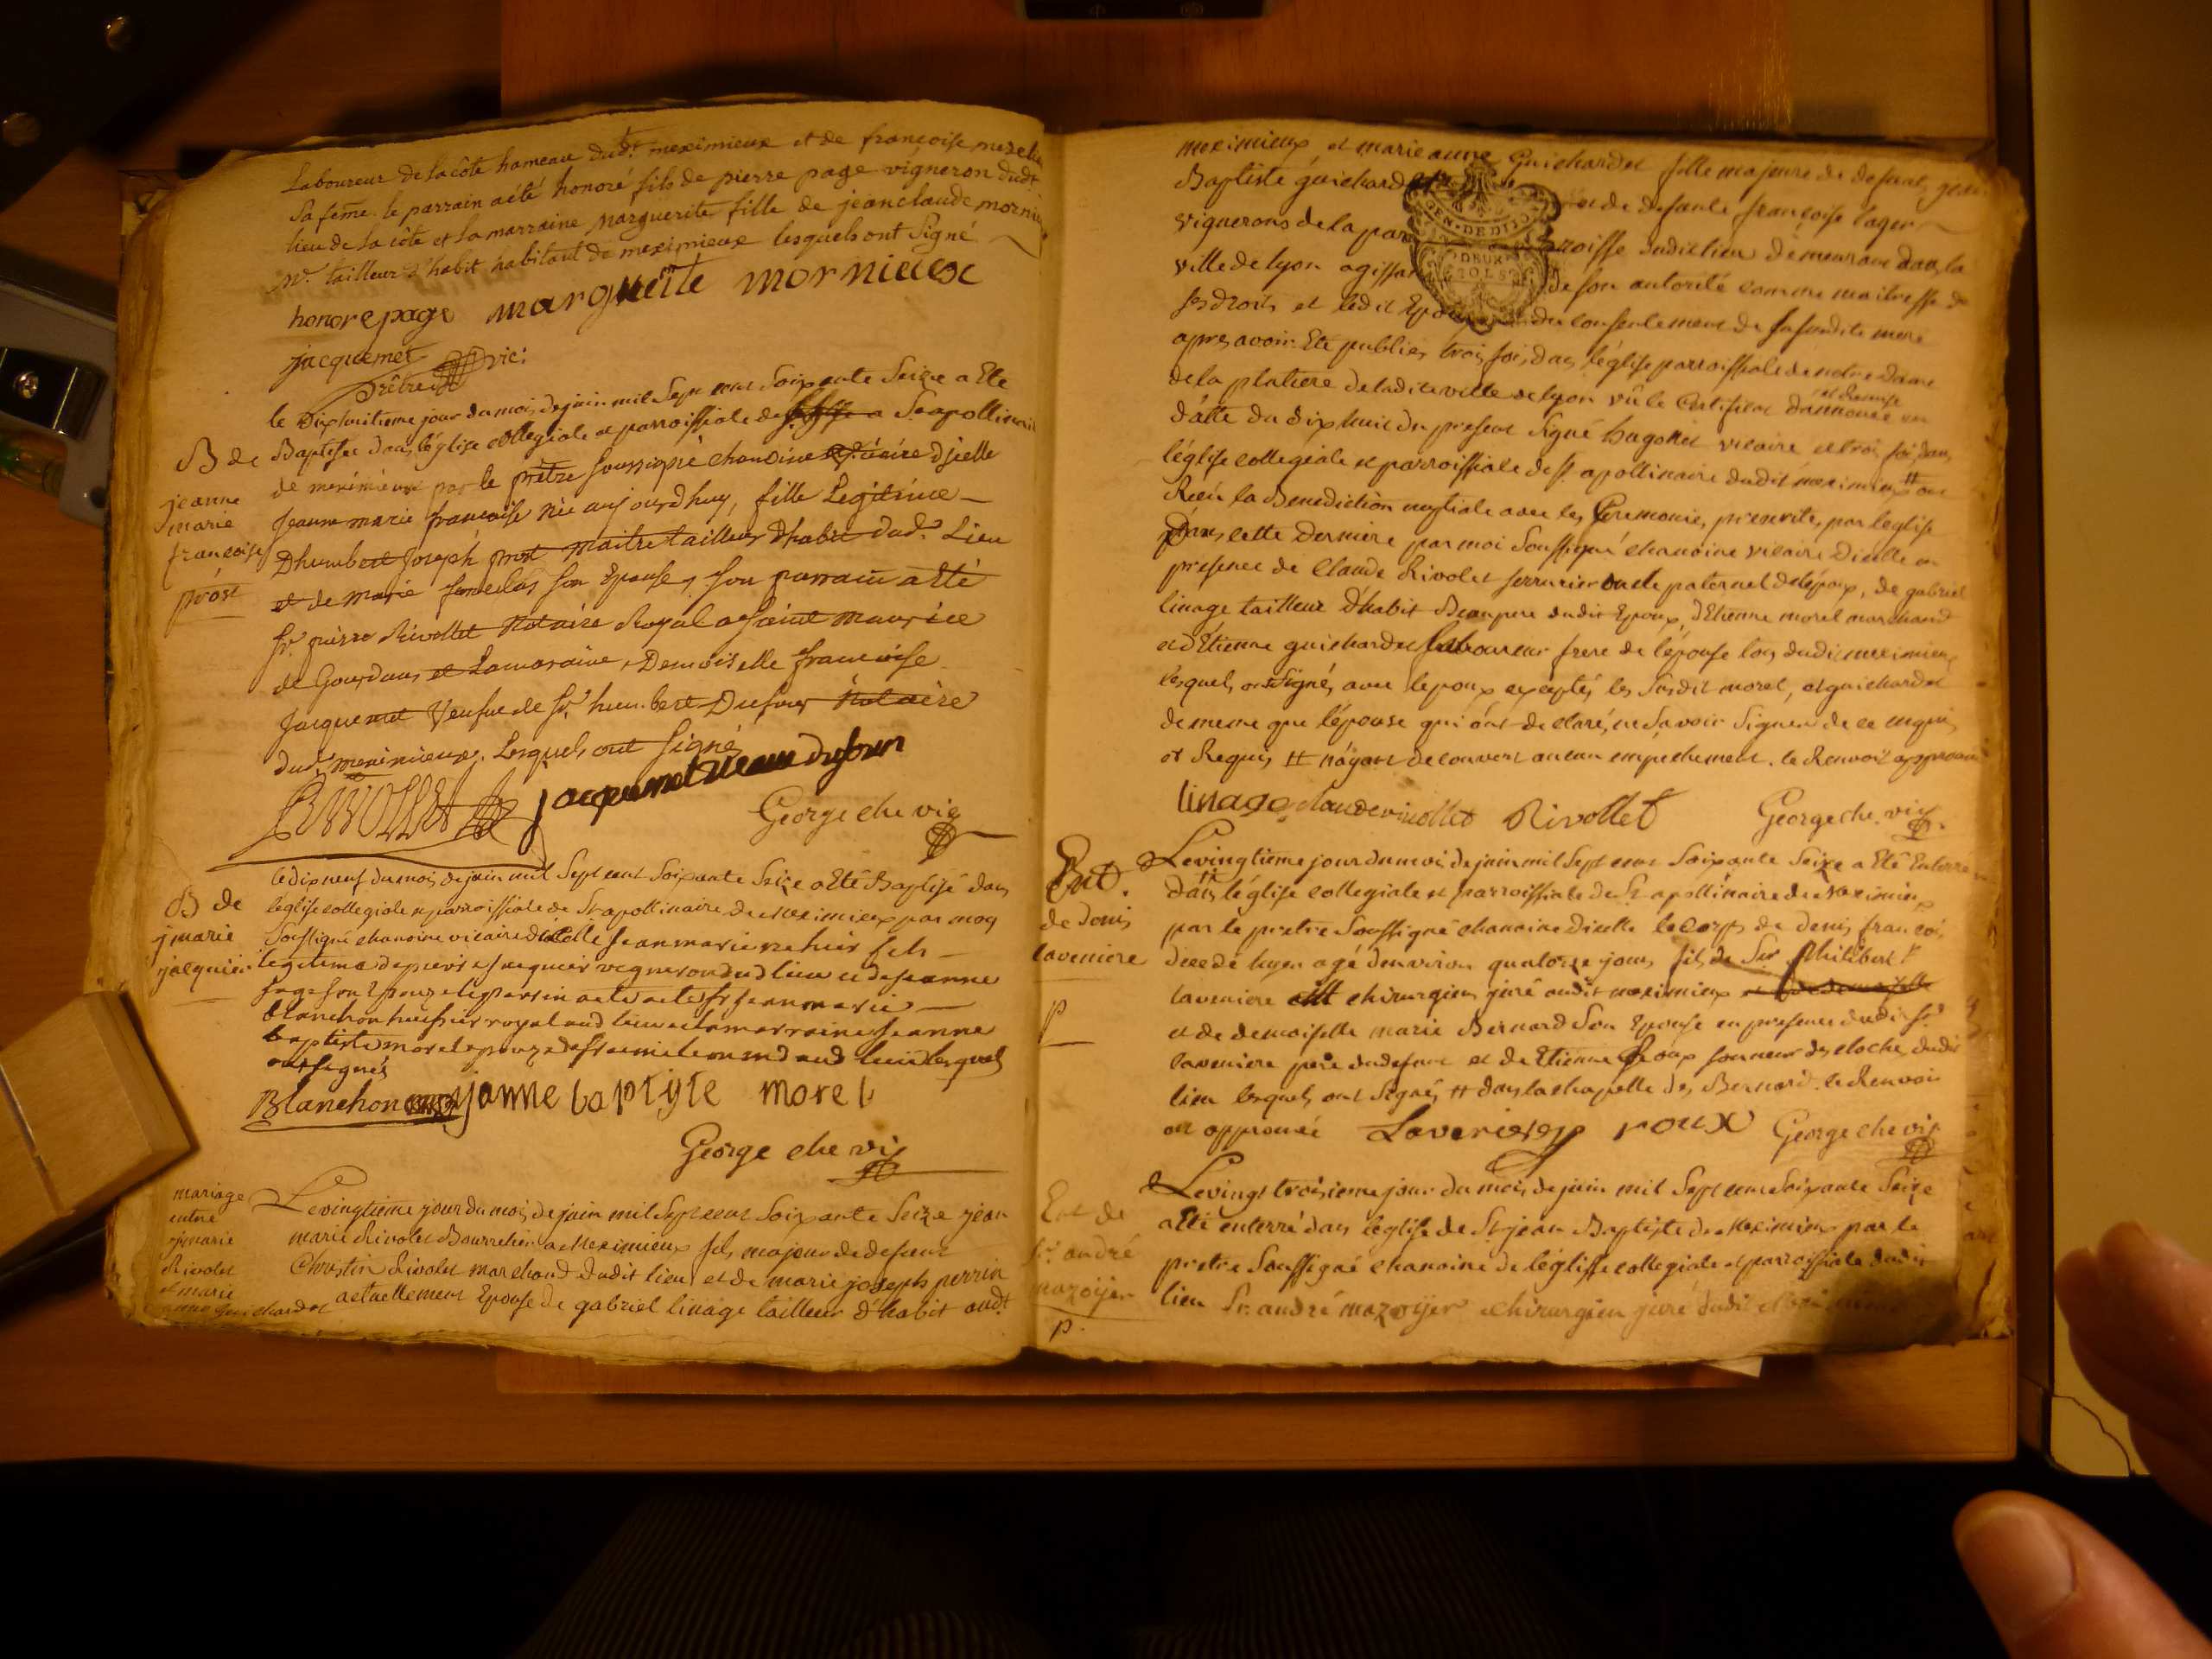 Laboureur de la côte hameau dudt. meximieux et de françoise
sa feme. le parrain a été honoré fils de pierre page vigneron dudt.
lieu de la côte et la marraine marguerite fille de jean claude mornieu
me. tailleur d'habit habitant de meximieux lesquels ont signé
honore page marguerite mornieux
jacquemet
prêtre vic:
le Dixhuitieme jour du mois de juin mil Sept cent Soixante Seize a Eté
Baptisee dans l'église collegiale et parroissiale de St apollinaire
B de
de meximieux par le prêtre soussigné chanoine vicaire d'icelle
jeanne
marie
françoise
prost
Jeanne marie francoise née aujourdhuy, fille Legitime
Dhumbert Joseph prost maitre tailleur Dhabit dud. Lieu
et de marie son Epouse, son parrain a Eté
Sr. pierre Rivollet Notaire Royal a saint maurice
de Gourdans et La maraine, Demoiselle francoise
Jacquemet Veufue de Sr. humbert Dufour Notaire
dud. meximieux. Lesquels ont signés
Rivollet jacquemet veuve dufour
George che vic
le dix neuf du mois de juin mil Sept cent Soixante Seize a Eté Baptisé dans
B de
jmarie
jacquier
l'église collegiale et parroissiale de St. apollinaire de Meximieux par moy
Soussigné chanoine vicaire d'icelle jean marie né hier fils
legitime de pierre jacquier vigneron dud lieu et de jeanne
sage son Epouze le parrin a eté Sr jean marie
blanchon huissier royal aud lieu et la marraine jeanne
baptiste morel epouze de aud lieu lesquels
ont signés
Blanchon janne baptiste morel
George che vic
mariage
entre
jmarie
Rivolet
et marie
anne Guichardet
Le vingtieme jour du mois de juin mil Sept cent Soixante Seize jean
marie Rivolet Bourrelier a Meximieux fils majeur de defunt
Christin Rivolet marchand dudit lieu et de marie joseph perrin
actuellement Epouse de gabriel linage tailleur d'habit audt.
meximieux, et marie anne Guichardet fille majeure de defunt jean
Baptiste guichardet et de defunte françoise lager
vignerons de la parroisse dudit lieu demeurant dans la
ville de lyon agissant de son autorité comme maitresse de
ses droits et ledit Epoux du consentement de sa susdite mere
apres avoir Eté publiés trois fois dans l'église parroissiale de notre Dame
de la platiere de ladite ville de lyon vû le Certificat d'annonce en
datte du dix huit du present signé hugonet vicaire et trois fois dans
l'église collegiale et parroissiale de St. apollinaire dudit meximieux # ont
Reçu la Benediction nuptiale avec les Ceremonies prescrites par l'eglise
dans cette derniere par moi Soussigné chanoine vicaire d'icelle en
presence de Claude Rivolet serrurier oncle paternel de l'époux, de gabriel
linage tailleur d'habit Beaupere dudit Epoux, d'Etienne morel marchand
et d'Etienne guichardet laboureur frere de l'épouse tous dudit meximieux
lesquels ont Signés avec l'epoux exceptés les susdit morel, et guichardet
de meme que l'épouse qui ont declaré ne savoir Signer de ce enquis
et Requis # n'ayant decouvert aucun empechement. le Renvoit approuvé
linage claude rivollet Rivollet George che. vic.
Ent.
de denis
laveniere
p
Le vingtieme jour du mois de juin mil Sept cent Soixante Seize a Eté Enterré
dans # l'église collegiale et parroissiale de St apollinaire de Meximieux
par le pretre Soussigné chanoine d'icelle le corps de denis françois
decedé hyer agé d'environ quatorze jours fils de Sr Philibert
laveniere chirurgien juré audit meximieux
et de demoiselle marie Bernard Son Epouse en presence dudit Sr
laveniere pere dudefunt et de Etienne Roux sonneur des cloches dudit
lieu lesquels ont Signés # dans la chapelle des Bernard. le Renvoi
est approuvé Laveniere roux George che vic
Ent de
Sr andré
mazoyer
p.
Le vingt troisieme jour du mois de juin mil Sept cent Soixante Seize
a Eté enterré dans l'église de St jean Baptiste de Meximieux par le
pretre Soussigné chanoine de l'église collegiale et parroissiale dudit
lieu Sr. andré mazoyer chirurgien juré dudit Meximieux